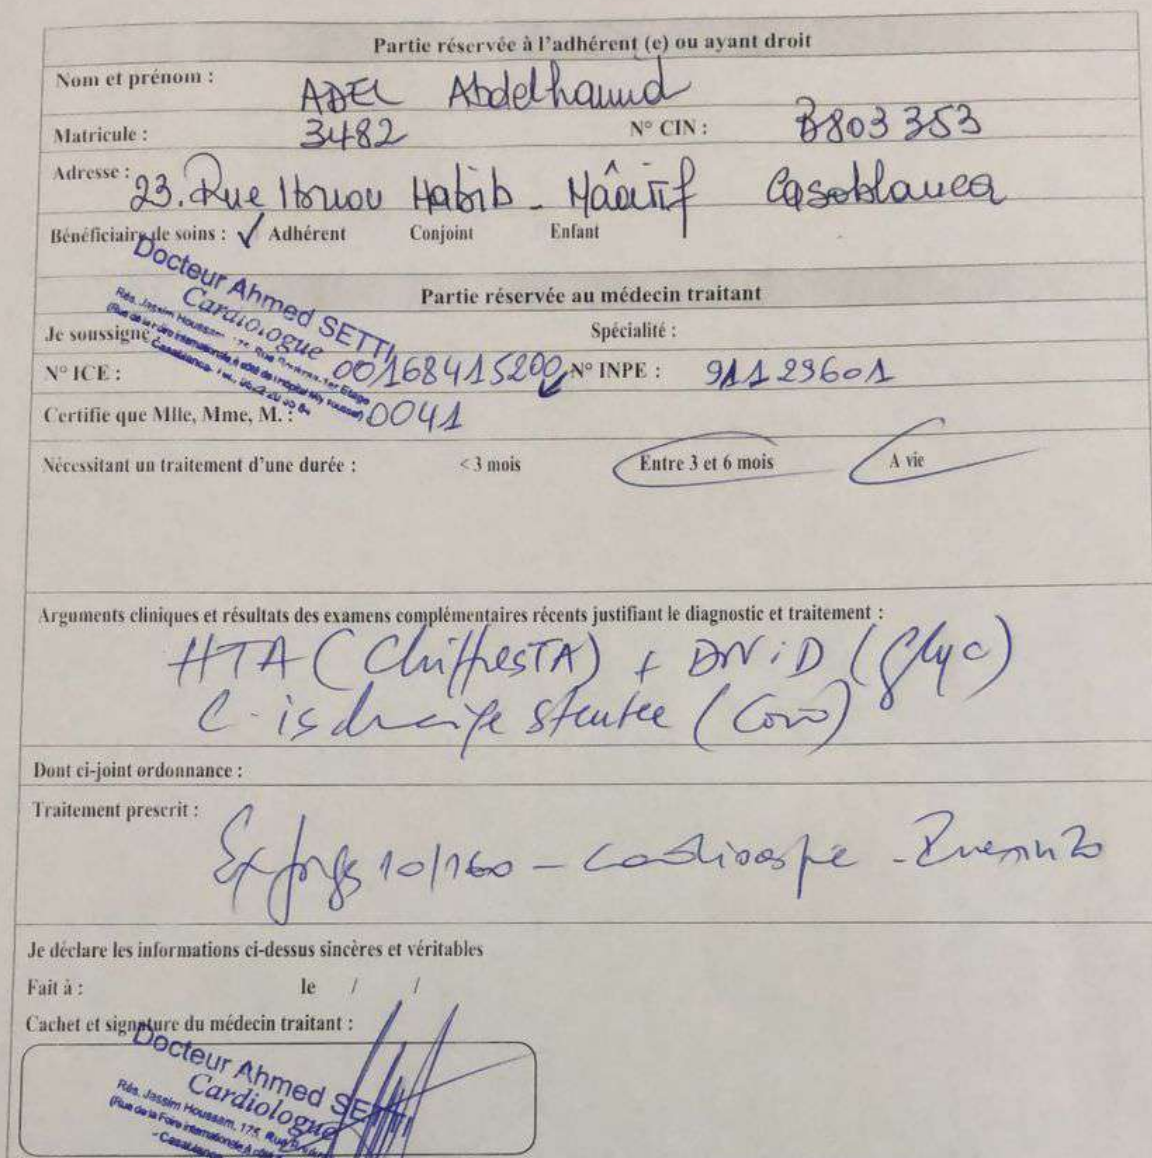 Partie réservée à l'adhérent (e) ou ayant droit
Nom et prénom : ADEL Abdelhamid
Matricule : 3482 N° CIN : B803353
Adresse : 23. Rue Habib - Mâarif Casablanca
Bénéficiaire de soins : ✓ Adhérent Conjoint Enfant
Docteur Ahmed SETTI
Cardiologue
Partie réservée au médecin traitant
Je soussigné Spécialité :
N° ICE : 001684415200 N° INPE : 91129601
Certifie que Mlle, Mme, M. : 0041
Nécessitant un traitement d'une durée : < 3 mois Entre 3 et 6 mois A vie
Arguments cliniques et résultats des examens complémentaires récents justifiant le diagnostic et traitement :
HTA (Chiffres TA) + DNiD (glyc)
C. stentée (Coro)
Dont ci-joint ordonnance :
Traitement prescrit :
Exforge 10/160 - Cardioaspi -
Je déclare les informations ci-dessus sincères et véritables
Fait à : le / /
Cachet et signature du médecin traitant :
Docteur Ahmed SETTI
Cardiologue
Rés. Jassim Houssam, 175, Rue